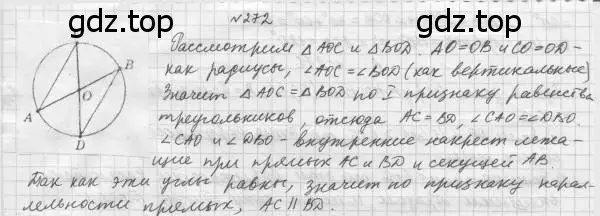 gdz.top
gdz.top
№272
Рассмотрим △ AOC и △ BOD. AO=OB и CO=OD-
как радиусы, ∠AOC=∠BOD (как вертикальные)
Значит △AOC=△BOD по I признаку равенства
треугольников, отсюда AC=BD, ∠CAO=∠DBO.
∠CAO и ∠DBO - внутренние накрест лежа-
щие при прямых AC и BD и секущей AB.
Так как эти углы равны, значит по признаку парал-
лельности прямых, AC ∥ BD.
B
O
A
D
gdz.top
gdz.top